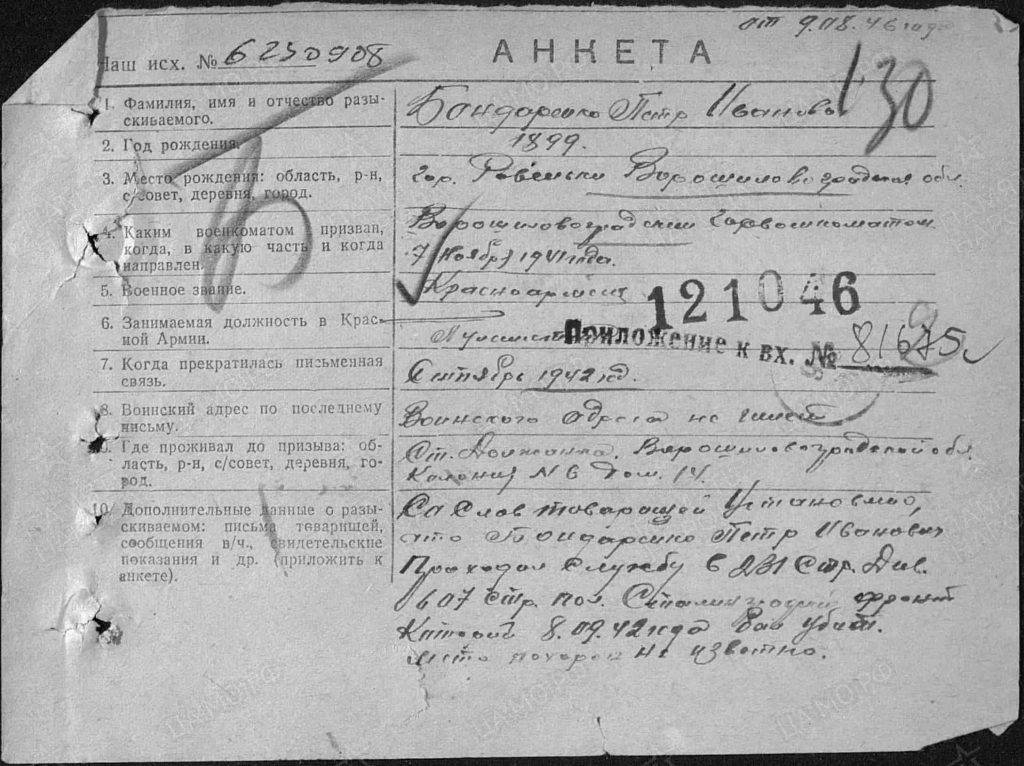 от 9.08.46 года
Наш исх. № 6230908
АНКЕТА
130
1. Фамилия, имя и отчество разы-
скиваемого.
Бондаренко Петр Иванович
2. Год рождения.
1899.
3. Место рождения: область, р-н,
с/совет, деревня, город.
гор. Ровеньки Ворошиловоградская обл.
4. Каким военкоматом призван,
когда, в какую часть и когда
направлен.
Ворошиловоградским Горвоенкоматом
7 Ноября 1941 года.
5. Военное звание.
Красноармеец
121046
6. Занимаемая должность в Крас-
ной Армии.
Приложение к вх. № 81675
7. Когда прекратилась письменная
связь.
Сентябрь 1942 год.
8. Воинский адрес по последнему
письму.
Воинского адреса не имеет
9. Где проживал до призыва: об-
ласть, р-н, с/совет, деревня, го-
род.
Ст. Должанка, Ворошиловоградской обл.
Колония N 6 Дом. 14.
10. Дополнительные данные о разы-
скиваемом: письма товарищей,
сообщения в/ч., свидетельские
показания и др. (приложить к
анкете).
Са Слов товарищей Установлио,
что Бондаренко Петр Иванович
Проходил Службу в 231 Стр. Див.
607 Стр. пол. Сталинградский фронт
Каторий 8.09.42 года был убит.
место похорон не известно.
ЦАМО.РФ